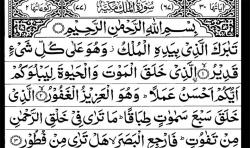 بِسْمِ اللّٰهِ الرَّحْمٰنِ الرَّحِيْمِ
تَبٰرَكَ الَّذِيْ بِيَدِهِ الْمُلْكُ وَهُوَ عَلٰى كُلِّ شَيْءٍ
قَدِيْرُ ۙ الَّذِيْ خَلَقَ الْمَوْتَ وَالْحَيٰوةَ لِيَبْلُوَكُمْ
اَيُّكُمْ اَحْسَنُ عَمَلًا ۭ وَهُوَ الْعَزِيْزُ الْغَفُوْرُ ۙ الَّذِيْ
خَلَقَ سَبْعَ سَمٰوٰتٍ طِبَاقًا ۭ مَا تَرٰى فِيْ خَلْقِ الرَّحْمٰنِ
مِنْ تَفٰوُتٍ ۭ فَارْجِعِ الْبَصَرَ ۙ هَلْ تَرٰى مِنْ فُطُوْرٍ